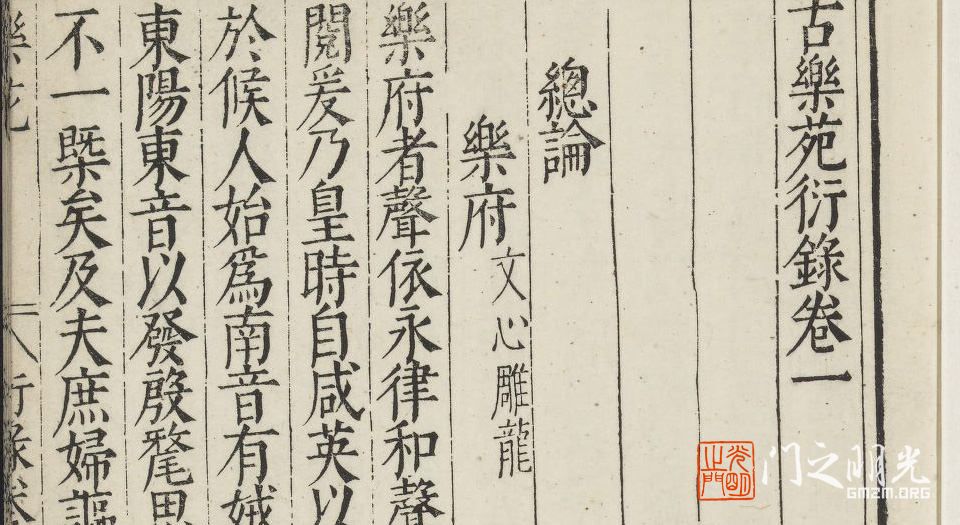 古樂苑衍錄卷一
總論
樂府 文心雕龍
樂府者聲依永律和聲
閱爰乃皇時自咸英以
於候人始爲南音有娀
東陽東音以發殷氂思
不一槩矣及夫庶婦謳
樂苑 衍錄卷
光明之门
GMZM.ORG